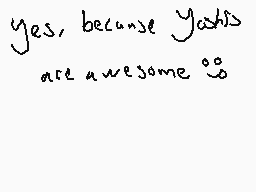 Yes, because Yoshis
are awesome